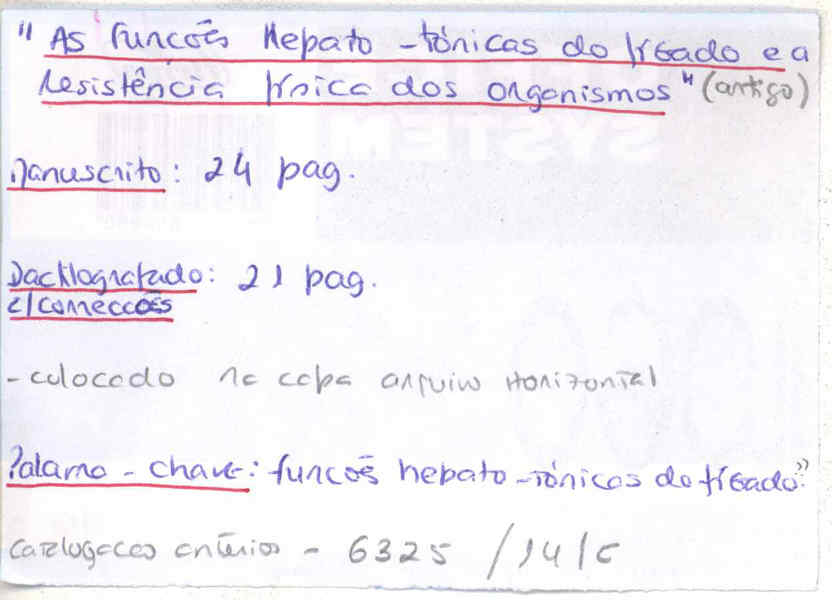 "As funcões Hepato-tónicas do fígado e a
resistência física dos organismos" (artigo)
Manuscrito: 24 pag.
Dactilografado: 21 pag.
c/ correccões
- colocado na capa arquivo Horizontal
Palavra-chave: funcões hepato-tónicas do fígado"
catalogacao anterior - 6325 /14/C
SYSTEM